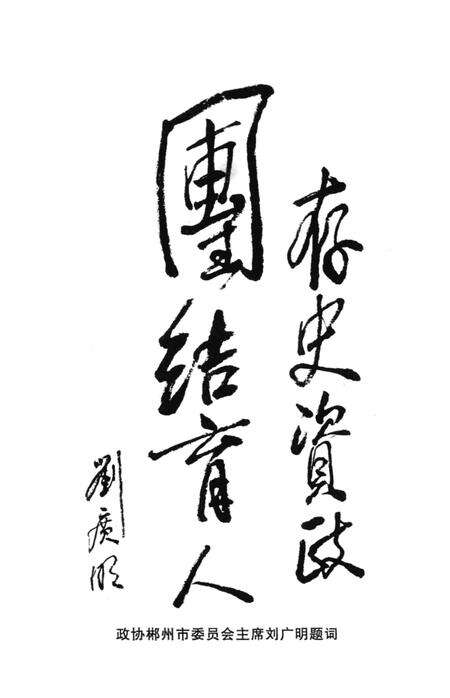 存史資政
團结育人
劉廣明
政协郴州市委员会主席刘广明题词